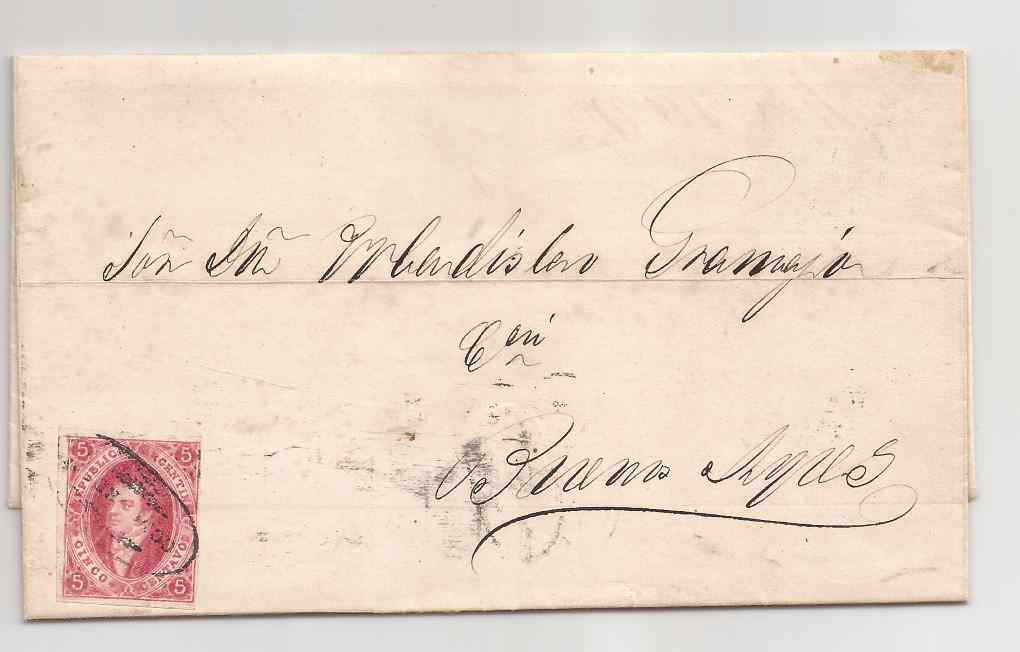 Sõr Dn Wladislao Gramajo
en
Buenos Ayres
5 5
REPUBLICA ARGENTINA
CINCO CENTAVOS
5 5